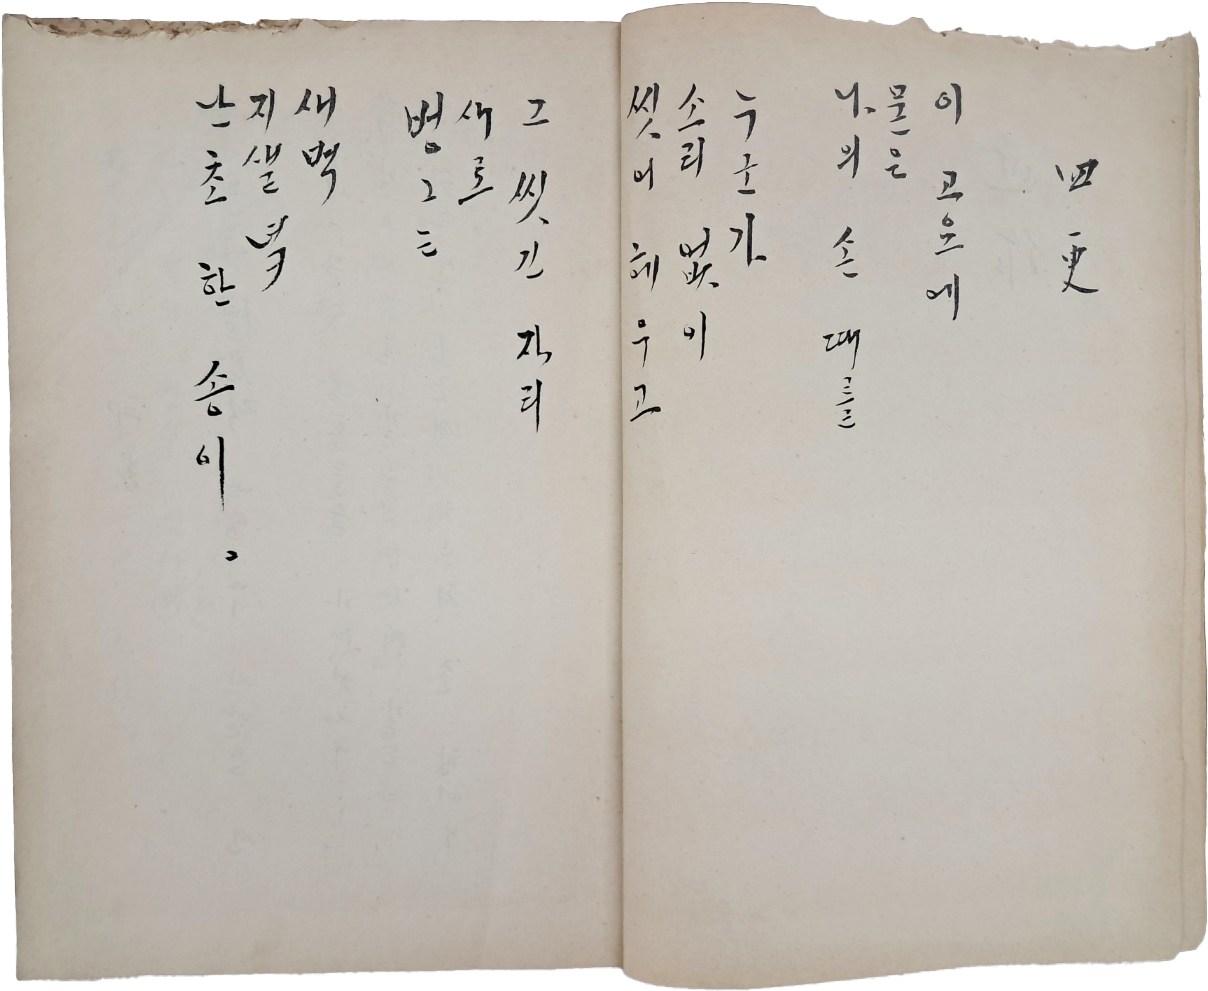 四更
이 고요에
묻은
나의 손때를
누군가
소리 없이
씻어 헤우고
그 씻긴 자리
새로
벙그는
새벽
지샐녘
난초 한 송이。